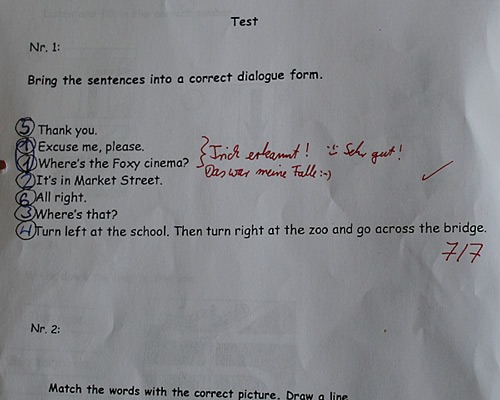 Test
Nr. 1:
Bring the sentences into a correct dialogue form.
5 Thank you.
1 Excuse me, please.
1 Where's the Foxy cinema? Trick erkannt! Sehr gut!
2 It's in Market Street. Das war meine Falle :-)
6 All right.
3 Where's that?
4 Turn left at the school. Then turn right at the zoo and go across the bridge.
7/7
Nr. 2:
Match the words with the correct picture. Draw a line